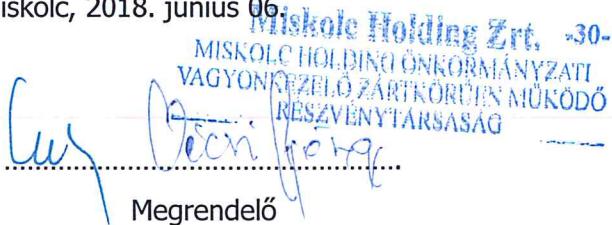 iskolc, 2018. június 06.
Miskolc Holding Zrt. -30-
MISKOLC HOLDING ÖNKORMÁNYZATI
VAGYONKEZELŐ ZÁRTKÖRŰEN MŰKÖDŐ
RÉSZVÉNYTÁRSASÁG
Megrendelő